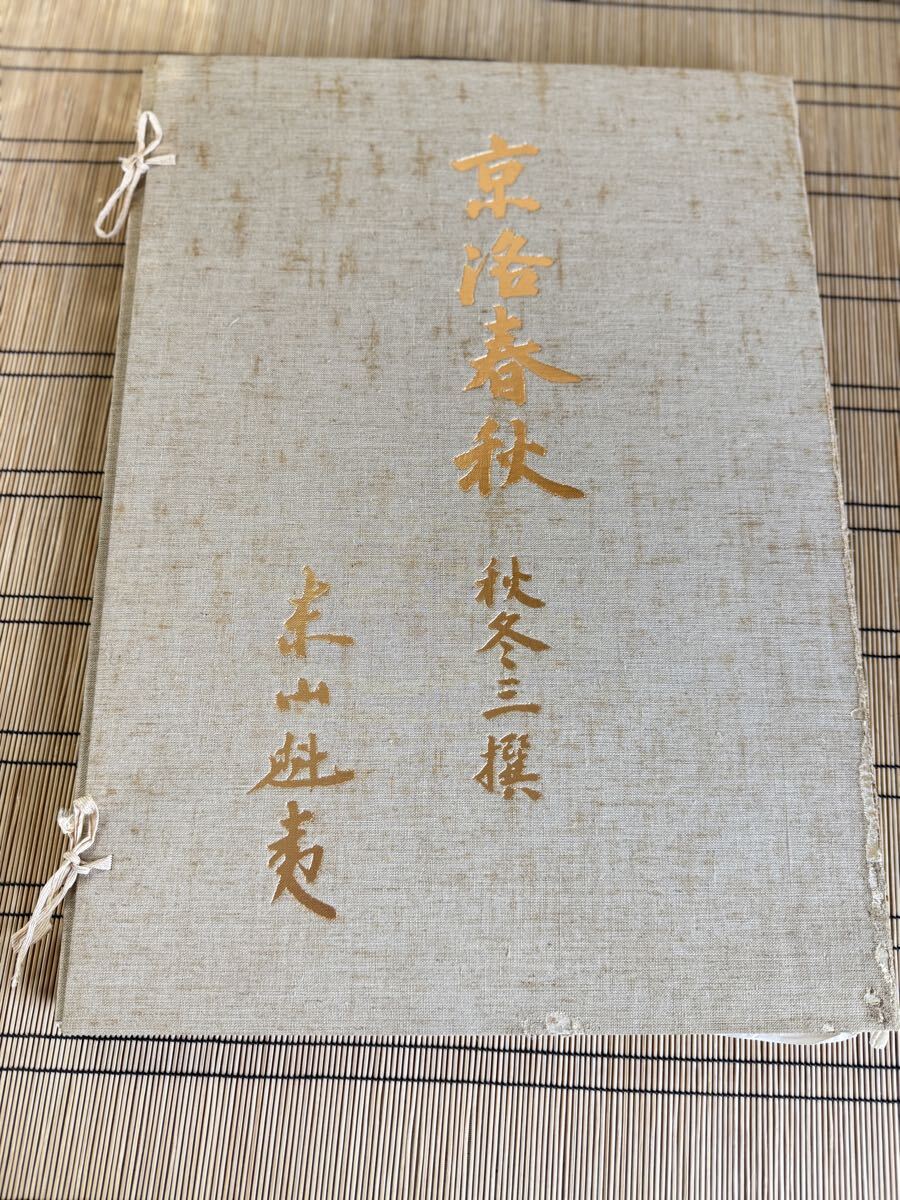 京洛春秋
秋冬三撰
東山魁夷